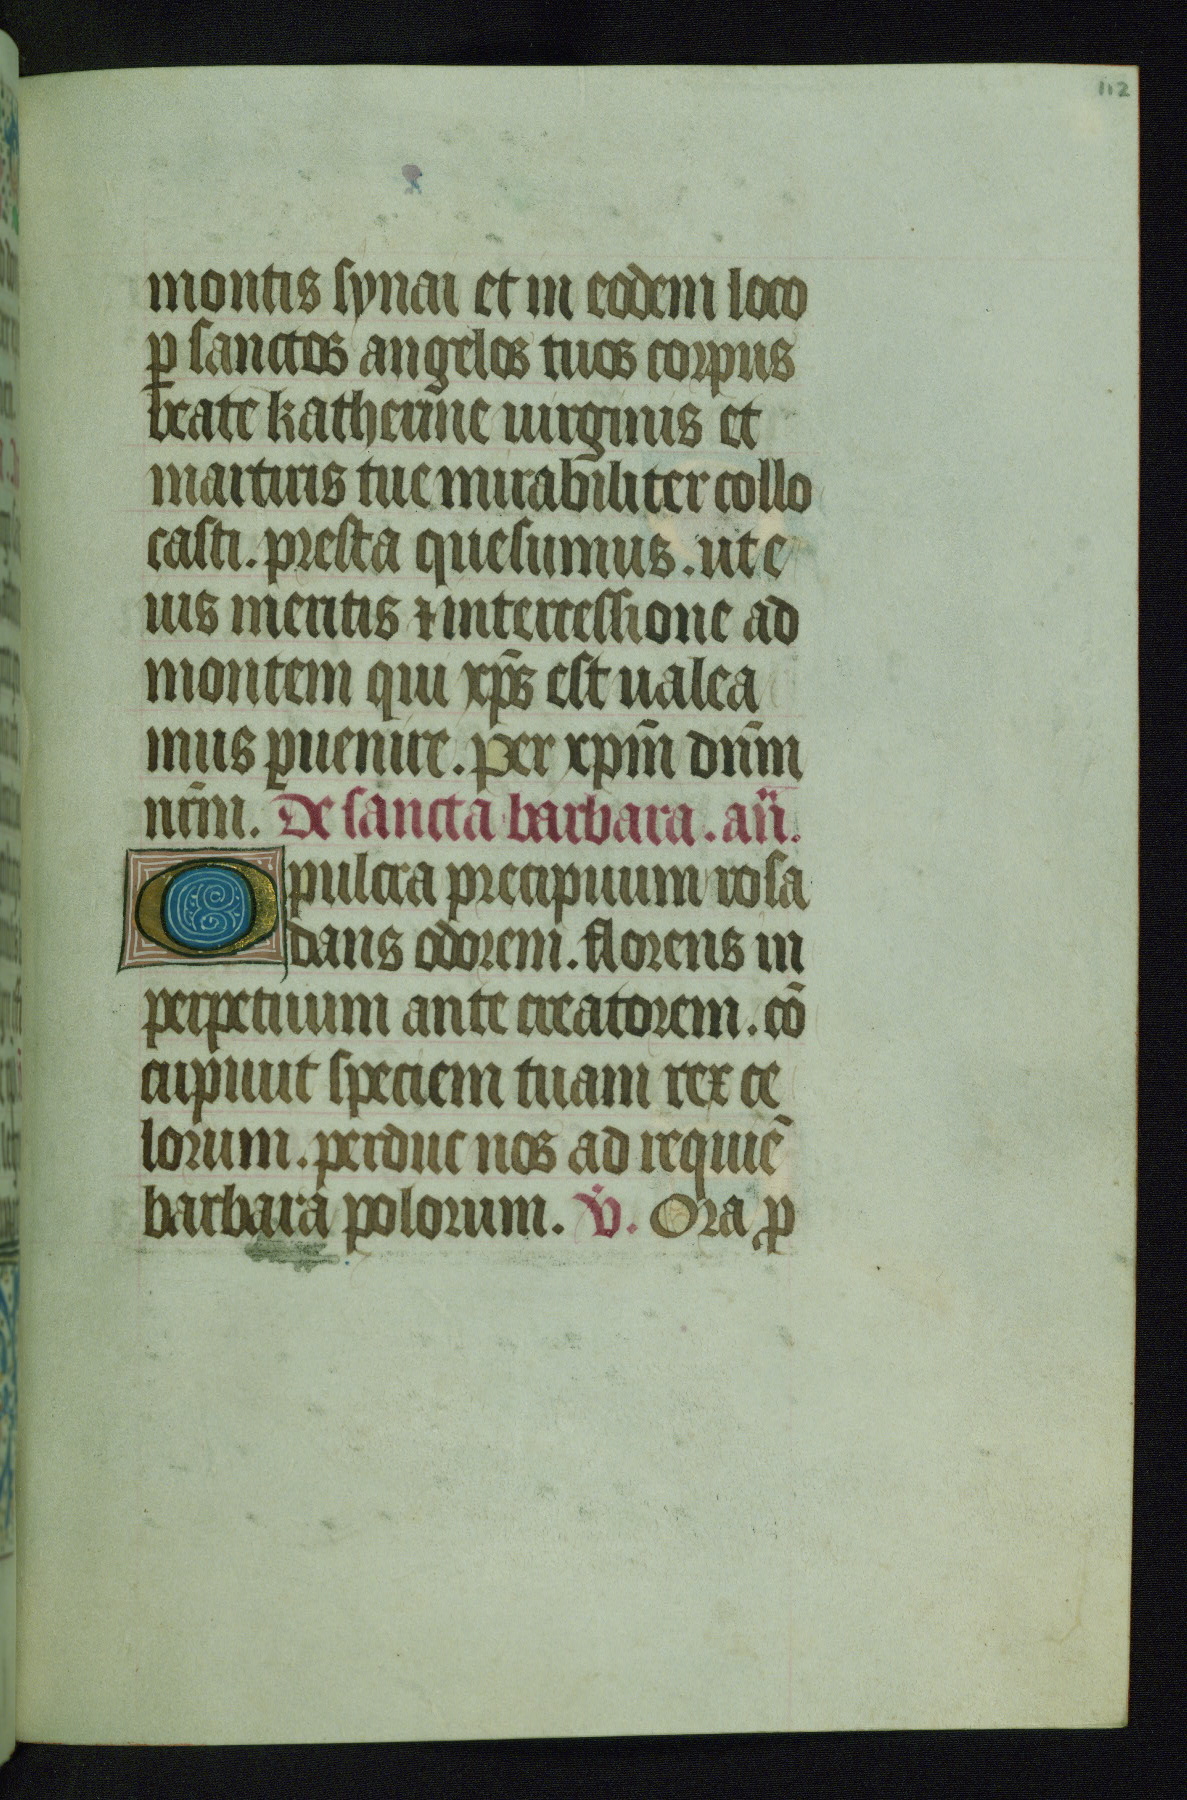 112
montis synai et in eodem loco
ꝑ sanctos angelos tuos corpus
beate katherine uirginis et
martiris tue mirabiliter collo
casti. presta quesumus. ut e
ius meritis ⁊ intercessione ad
montem qui xp̄s est ualea
mus ꝑuenire. Per xp̄m dn̄m
nr̄m. De sancta barbara. an̄.
O pulcra precipuum rosa
dans odorem. florens in
perpetuum ante creatorem. cō
cupiuit speciem tuam rex ce
lorum. perduc nos ad requiē
barbara polorum. v̄. Ora ꝓ